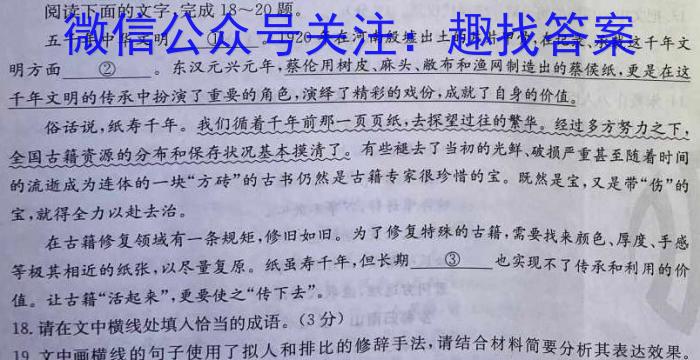 阅读下面的文字,完成18～20题。
微信公众号关注：趣找答案
五千年中华文明 ① 。1920年在河南殷墟出土的 在 这千年文
明方面 ② 。东汉元兴元年,蔡伦用树皮、麻头、敝布和渔网制造出的蔡侯纸,更是在这
千年文明的传承中扮演了重要的角色,演绎了精彩的戏份,成就了自身的价值。
俗话说,纸寿千年。我们循着千年前那一页页纸,去探望过往的繁华。经过多方努力之下,
全国古籍资源的分布和保存状况基本摸清了。有些褪去了当初的光鲜、破损严重甚至随着时间
的流逝成为连体的一块“方砖”的古书仍然是古籍专家很珍惜的宝。既然是宝,又是带“伤”的
宝,就得全力以赴去治。
在古籍修复领域有一条规矩,修旧如旧。为了修复特殊的古籍,需要找来颜色、厚度、手感
等极其相近的纸张,以尽量复原。纸虽寿千年,但长期 ③ 也实现不了传承和利用的价
值。让古籍“活起来”,更要使之“传下去”。
18.请在文中横线处填入恰当的成语。(3分)
19.文中画横线的句子使用了拟人和排比的修辞手法,请结合材料简要分析其表达效果。